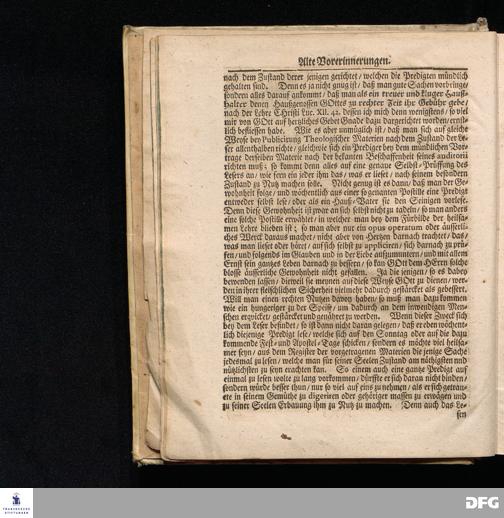 Alte Vorerinnerungen.
nach dem Zustand derer jenigen gerichtet / welchen die Predigten mündlich
gehalten sind. Denn es ja nicht gnug ist / daß man gute Sachen vorbringe /
sondern alles darauf ankommt / daß man als ein treuer und kluger Hauß-
halter denen Haußgenossen GOttes zu rechter Zeit ihr Gebühr gebe /
nach der Lehre Christi Luc. XII. 42. dessen ich mich denn wenigstens / so viel
mir von GOtt auf hertzliches Gebet Gnade dazu dargerichtet worden / ernst-
lich beflissen habe. Wie es aber unmüglich ist / daß man sich auf gleiche
Weyse bey Publicirung Theologischer Materien nach dem Zustand der Le-
ser allenthalben richte / gleichwie sich ein Prediger bey dem mündlichen Vor-
trage derselben Materie nach der bekanten Beschaffenheit seines auditorii
richten muß; so kommt denn alles auf eine genaue Selbst-Prüffung des
Lesers an / wie fern ein jeder ihm das / was er lieset / nach seinem besondern
Zustand zu Nutz machen solle. Nicht genug ist es dann / daß man der Ge-
wohnheit folge / und wöchentlich aus einer so genanten Postille eine Predigt
entweder selbst lese / oder als ein Hauß-Vater sie den Seinigen vorlese.
Denn diese Gewohnheit ist zwar an sich selbst nicht zu tadeln / so man anders
eine solche Postille erwählet / in welcher man bey dem Fürbilde der heilsa-
men Lehre blieben ist; so man aber nur ein opus operatum oder äusserli-
ches Werck daraus machet / nicht aber von Hertzen darnach trachtet / das /
was man lieset oder höret / auf sich selbst zu appliciren / sich darnach zu prü-
fen / und folgends im Glauben und in der Liebe aufzumuntern / und mit allem
Ernst sein gantzes Leben darnach zu bessern / so kan GOtt dem HErrn solche
blosse äusserliche Gewohnheit nicht gefallen. Ja die jenigen / so es dabey
bewenden lassen / dieweil sie meynen auf diese Weyse GOtt zu dienen / wer-
den in ihrer fleischlichen Sicherheit vielmehr dadurch gestärcket als gebessert.
Will man einen rechten Nutzen davon haben / so muß man dazu kommen
wie ein hungeriger zu der Speise / um dadurch an dem inwendigen Men-
schen erqvicket / gestärcket und genähret zu werden. Wenn dieser Zweck sich
bey dem Leser befindet / so ist dann nicht daran gelegen / daß er eben wöchent-
lich diejenige Predigt lese / welche sich auf den Sonntag oder auf die dazu
kommende Fest- und Apostel-Tage schicken / sondern es möchte viel heilsa-
mer seyn / aus dem Register der vorgetragenen Materien die jenige Sache
jedesmal zu lesen / welche man für seiner Seelen Zustand am nöthigsten und
nützlichsten zu seyn erachten kan. So einem auch eine gantze Predigt auf
einmal zu lesen wolte zu lang vorkommen / dürffte er sich daran nicht binden /
sondern würde besser thun / nur so viel auf eins zu nehmen / als er sich getrau-
ete in seinem Gemüthe zu digeriren oder gehöriger massen zu erwägen und
zu seiner Seelen Erbauung ihm zu Nutz zu machen. Denn auch das Le-
sen
FRANCKESCHE
STIFTUNGEN
DFG